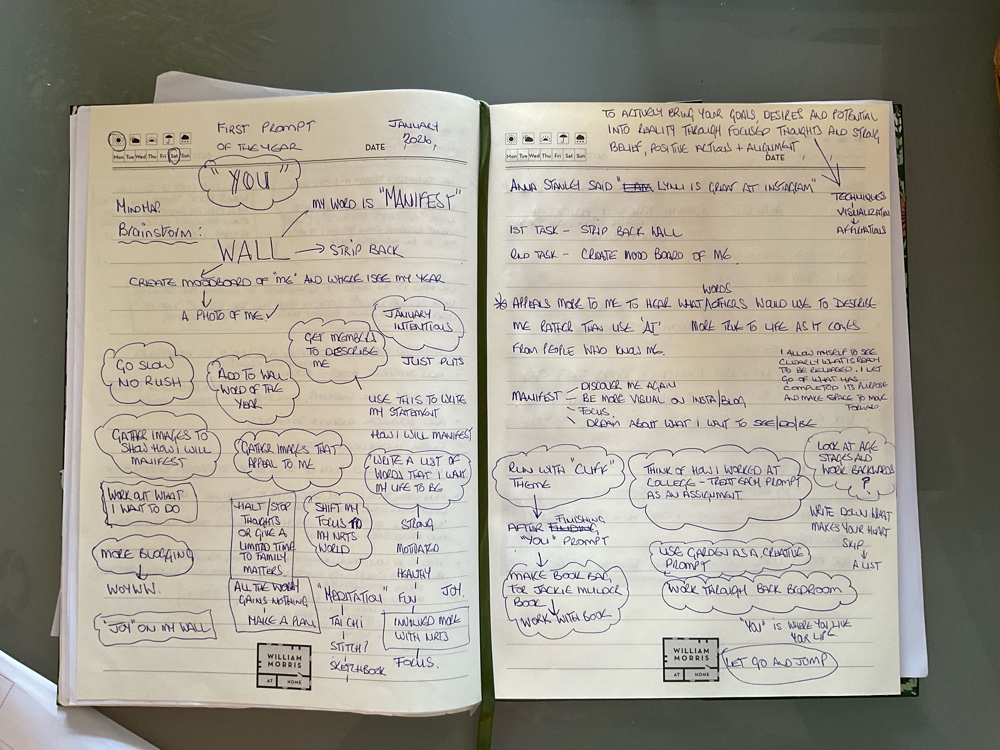 FIRST PROMPT
OF THE YEAR
JANUARY
2026
DATE
Mon Tue Wed Thu Fri Sat Sun
"YOU"
MY WORD IS "MANIFEST"
MINDMAP
Brainstorm:
WALL → STRIP BACK
CREATE MOODBOARD OF "ME" AND WHERE I SEE MY YEAR
A PHOTO OF ME ✓
JANUARY
INTENTIONS
GET MEMBERS
TO DESCRIBE
ME
JUST PUTS
GO SLOW
NO RUSH
ADD TO WALL
WORD OF THE
YEAR
USE THIS TO WRITE
MY STATEMENT
GATHER IMAGES TO
SHOW HOW I WILL
MANIFEST
GATHER IMAGES THAT
APPEAL TO ME
HOW I WILL MANIFEST
WRITE A LIST OF
WORDS THAT I WANT
MY LIFE TO BE
WORK OUT WHAT
I WANT TO DO
HALT/STOP
THOUGHTS
OR GIVE A
LIMITED TIME
TO FAMILY
MATTERS.
SHIFT MY
FOCUS TO
MY NRTS
WORLD
STRONG
MOTIVATED
HEALTHY
FUN
JOY.
MORE BLOGGING
WOYWW.
ALL THE WORRY
GAINS NOTHING
MAKE A PLAN
"MEDITATION"
TAI CHI
STITCH?
SKETCHBOOK
INVOLVED MORE
WITH NRTS
FOCUS.
"JOY" ON MY WALL
WILLIAM
MORRIS
AT HOME
TO ACTIVELY BRING YOUR GOALS, DESIRES AND POTENTIAL
INTO REALITY THROUGH FOCUSED THOUGHTS AND STRONG
BELIEF, POSITIVE ACTIONS + ALIGNMENT
DATE
Mon Tue Wed Thu Fri Sat Sun
ANNA STANLEY SAID "I AM LYNN IS GREAT AT INSTAGRAM"
TECHNIQUES
VISUALIZATION
AFFIRMATIONS
1ST TASK - STRIP BACK WALL
2ND TASK - CREATE MOOD BOARD OF ME.
WORDS
* APPEALS MORE TO ME TO HEAR WHAT/OTHERS WOULD USE TO DESCRIBE
ME RATHER THAN USE 'AI' MORE TRUE TO LIFE AS IT COMES
FROM PEOPLE WHO KNOW ME.
I ALLOW MYSELF TO SEE
CLEARLY WHAT IS READY
TO BE RELEASED. I LET
GO OF WHAT HAS
COMPLETED ITS PURPOSE
AND MAKE SPACE TO MOVE
FORWARD
MANIFEST
- DISCOVER ME AGAIN
- BE MORE VISUAL ON INSTA/BLOG
- FOCUS.
- DREAM ABOUT WHAT I WANT TO SEE/DO/BE
RUN WITH "CLIFF"
THEME
THINK OF HOW I WORKED AT
COLLEGE - TREAT EACH PROMPT
AS AN ASSIGNMENT
LOOK AT AGE
STAGES AND
WORK BACKWARDS
?
AFTER FINISHING
"YOU" PROMPT
WRITE DOWN WHAT
MAKES YOUR HEART
SKIP...
A LIST
USE GARDEN AS A CREATIVE
PROMPT
MAKE BOOK BAG,
FOR JACKIE MULDER
BOOK
WORK WITH BOOK
WORK THROUGH BACK BEDROOM
"YOU" IS WHERE YOU LIVE
YOUR LIFE
LET GO AND JUMP
WILLIAM
MORRIS
AT HOME